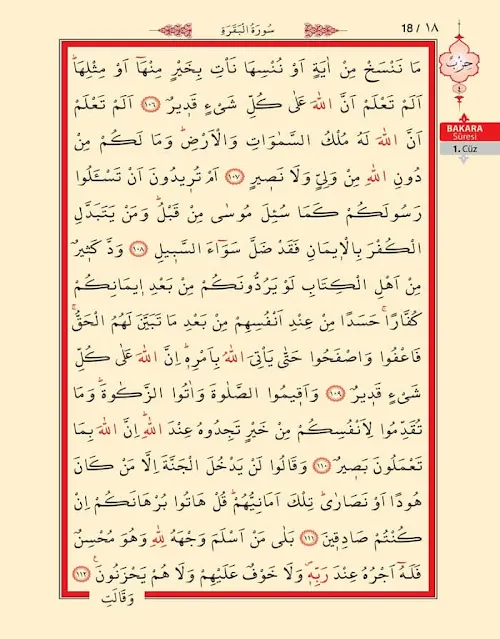 سُورَةُ الْبَقَرَةِ
18 / ١٨
حِزْبُ
٤
BAKARA
Sûresi
1. Cüz
مَا نَنْسَخْ مِنْ اٰيَةٍ اَوْ نُنْسِهَا نَأْتِ بِخَيْرٍ مِنْهَٓا اَوْ مِثْلِهَاۜ
اَلَمْ تَعْلَمْ اَنَّ اللّٰهَ عَلٰى كُلِّ شَيْءٍ قَد۪يرٌ ﴿١٠٦﴾ اَلَمْ تَعْلَمْ
اَنَّ اللّٰهَ لَهُ مُلْكُ السَّمٰوَاتِ وَالْاَرْضِۜ وَمَا لَكُمْ مِنْ
دُونِ اللّٰهِ مِنْ وَلِيٍّ وَلَا نَص۪يرٍ ﴿١٠٧﴾ اَمْ تُر۪يدُونَ اَنْ تَسْـَٔلُوا
رَسُولَكُمْ كَمَا سُئِلَ مُوسٰى مِنْ قَبْلُۜ وَمَنْ يَتَبَدَّلِ
الْكُفْرَ بِالْا۪يمَانِ فَقَدْ ضَلَّ سَوَٓاءَ السَّب۪يلِ ﴿١٠٨﴾ وَدَّ كَث۪يرٌ
مِنْ اَهْلِ الْكِتَابِ لَوْ يَرُدُّونَكُمْ مِنْ بَعْدِ ا۪يمَانِكُمْ
كُفَّارًاۚ حَسَدًا مِنْ عِنْدِ اَنْفُسِهِمْ مِنْ بَعْدِ مَا تَبَيَّنَ لَهُمُ الْحَقُّۚ
فَاعْفُوا وَاصْفَحُوا حَتّٰى يَأْتِيَ اللّٰهُ بِاَمْرِه۪ۜ اِنَّ اللّٰهَ عَلٰى كُلِّ
شَيْءٍ قَد۪يرٌ ﴿١٠٩﴾ وَاَق۪يمُوا الصَّلٰوةَ وَاٰتُوا الزَّكٰوةَۜ وَمَا
تُقَدِّمُوا لِاَنْفُسِكُمْ مِنْ خَيْرٍ تَجِدُوهُ عِنْدَ اللّٰهِۜ اِنَّ اللّٰهَ بِمَا
تَعْمَلُونَ بَص۪يرٌ ﴿١١٠﴾ وَقَالُوا لَنْ يَدْخُلَ الْجَنَّةَ اِلَّا مَنْ كَانَ
هُودًا اَوْ نَصَارٰىۜ تِلْكَ اَمَانِيُّهُمْۜ قُلْ هَاتُوا بُرْهَانَكُمْ اِنْ
كُنْتُمْ صَادِق۪ينَ ﴿١١١﴾ بَلٰى مَنْ اَسْلَمَ وَجْهَهُ لِلّٰهِ وَهُوَ مُحْسِنٌ
فَلَهُٓ اَجْرُهُ عِنْدَ رَبِّه۪ۖ وَلَا خَوْفٌ عَلَيْهِمْ وَلَا هُمْ يَحْزَنُونَ۟ ﴿١١٢﴾
وَقَالَتِ